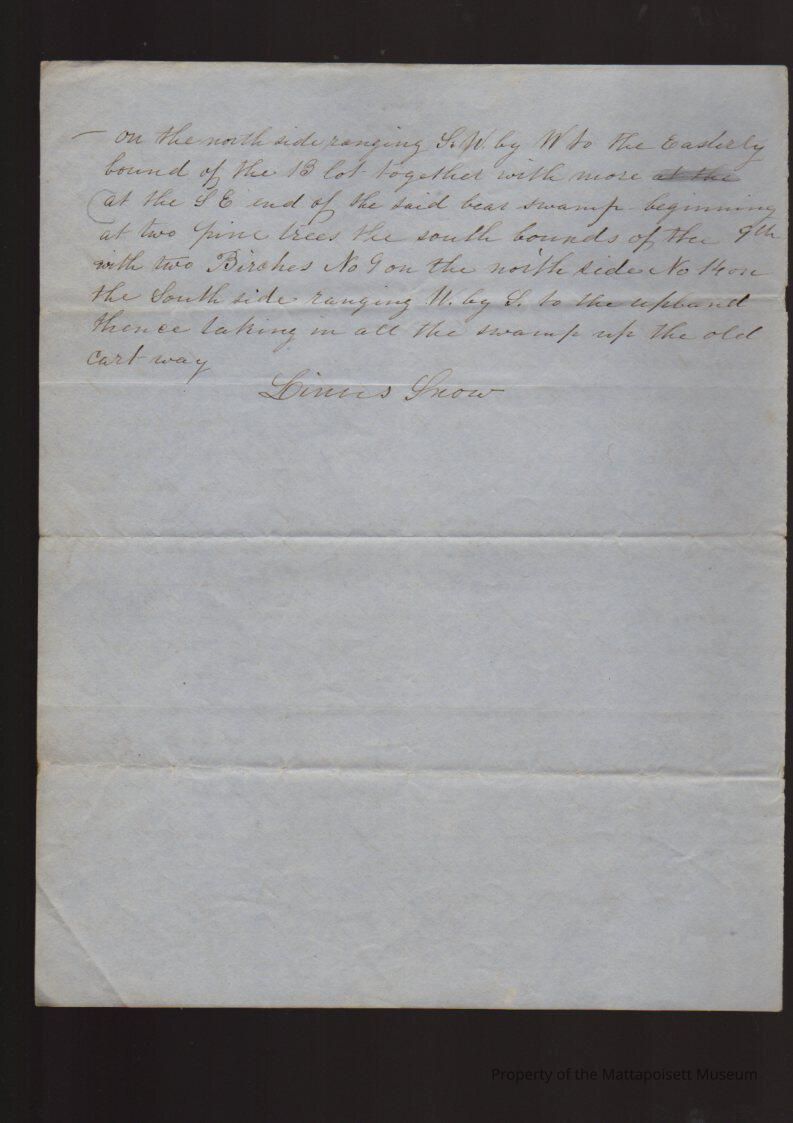 — on the north side ranging S. W. by W to the Easterly
bound of the 13 lot together with more at the
at the S E end of the said bear swamp beginning
at two pine trees the south bounds of the 9th
with two Birches No 9 on the north side No 14 on
the South side ranging W. by S. to the upland
thence taking in all the swamp up the old
cart way
Linus Snow
Property of the Mattapoisett Museum